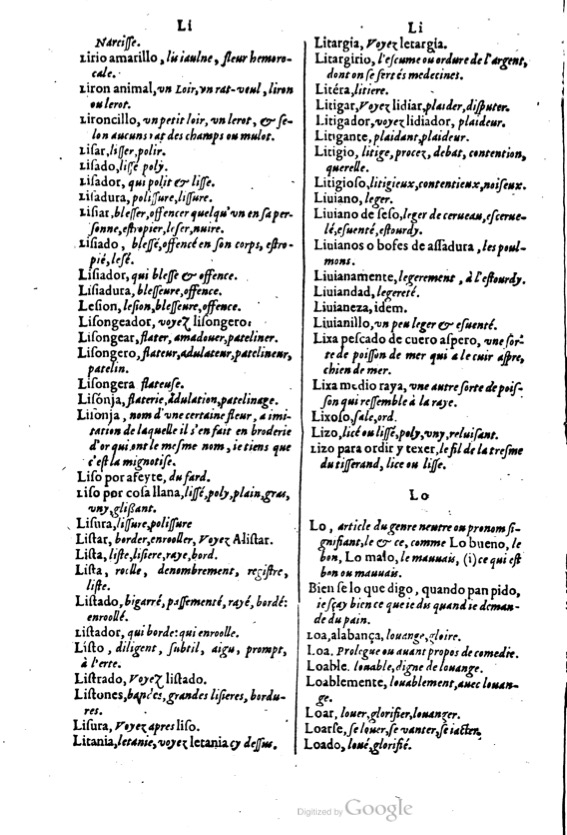 Li
Narcisse.
Lirio amarillo, lis iaulne, fleur hemoro-
cale.
Liron animal, vn Loir, vn rat-veul, liron
ou lerot.
Lironcillo, vn petit loir, vn lerot, & se-
lon aucuns rat des champs ou mulot.
Lisar, lisser, polir.
Lisado, lissé poly.
Lisador, qui polit & lisse.
Lisadura, polissure, lissure.
Lisiar, blesser, offencer quelqu'vn en sa per-
sonne, estropier, leser, nuire.
Lisiado, blessé, offencé en son corps, estro-
pié, lesé.
Lisiador, qui blesse & offence.
Lisiadura, blesseure, offence.
Lesion, lesion, blesseure, offence.
Lisongeador, voyez lisongero:
Lisongear, flater, amadouer, pateliner.
Lisongero, flateur, adulateur, patelineur,
patelin.
Lisongera flateuse.
Lisonja, flaterie, adulation, patelinage.
Lisonja, nom d'vne certaine fleur, a imi-
tation de laquelle il s'en fait en broderie
d'or qui ont le mesme nom, ie tiens que
c'est la mignotise.
Liso por afeyte, du fard.
Liso por cosa llana, lissé, poly, plain, gras,
vny, glissant.
Lisura, lissure, polissure
Listar, border, enrooller, Voyez Alistar.
Lista, liste, lisiere, raye, bord.
Lista, roolle, denombrement, registre,
liste.
Listado, bigarré, passementé, rayé, bordé:
enroollé.
Listador, qui borde: qui enroolle.
Listo, diligent, subtil, aigu, prompt,
à l'erte.
Listrado, Voyez listado.
Listones, bandes, grandes lisieres, bordu-
res.
Lisura, Voyez apres liso.
Litania, letanie, voyez letania cy dessus.
Li
Litargia, Voyez letargia.
Litargirio, l'escume ou ordure de l'argent,
dont on se sert és medecines.
Litéra, litiere.
Litigar, Voyez lidiar, plaider, disputer.
Litigador, voyez lidiador, plaideur.
Litigante, plaidant, plaideur.
Litigio, litige, procez, debat, contention,
querelle.
Litigioso, litigieux, contentieux, noiseux.
Liuiano, leger.
Liuiano de seso, leger de cerueau, escerue-
lé, esuenté, estourdy.
Liuianos o bofes de assadura, les poul-
mons.
Liuianamente, legerement, à l'estourdy.
Liuiandad, legereté.
Liuianeza, idem.
Liuianillo, vn peu leger & esuenté.
Lixa pescado de cuero aspero, vne sor-
te de poisson de mer qui a le cuir aspre,
chien de mer.
Lixa medio raya, vne autre sorte de pois-
son qui ressemble à la raye.
Lixoso, sale, ord.
Lizo, licé ou lissé, poly, vny, reluisant.
Lizo para ordir y texer, le fil de la tresme
du tisserand, lice ou lisse.
Lo
Lo, article du genre neutre ou pronom si-
gnifiant, le & ce, comme Lo bueno, le
bon, Lo malo, le mauuais, (i) ce qui est
bon ou mauuais.
Bien se lo que digo, quando pan pido,
ie sçay bien ce que ie dis quand ie deman-
de du pain.
Loa, alabança, louange, gloire.
Loa. Prologue ou auant propos de comedie.
Loable. louable, digne de louange.
Loablemente, louablement, auec louan-
ge.
Loar, louer, glorifier, louanger.
Loarse, se louer, se vanter, se iacter.
Loado, loué, glorifié.
Digitized by Google